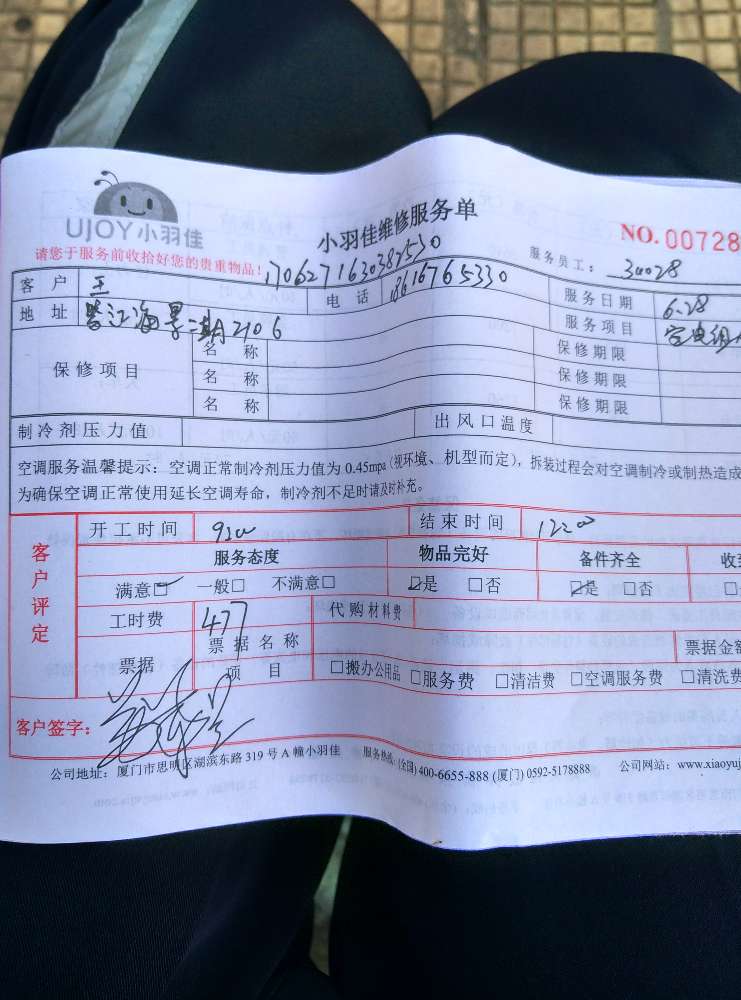 UJOY小羽佳
小羽佳维修服务单
NO. 00728
请您于服务前收拾好您的贵重物品！
1706271630382530
服务员工： 34028
客 户 王 电 话 18616765330 服务日期 6.28
地 址 海景二期A2106 服务项目 空
保修项目 名 称 保修期限
名 称 保修期限
名 称 保修期限
制冷剂压力值 出风口温度
空调服务温馨提示：空调正常制冷剂压力值为 0.45mpa（视环境、机型而定），拆装过程会对空调制冷或制热造成
为确保空调正常使用延长空调寿命，制冷剂不足时请及时补充。
客户评定
开工时间 9:00 结束时间 12:00
服务态度 物品完好 备件齐全 收
满意☑ 一般□ 不满意□ ☑是 □否 ☑是 □否 □
工时费 477 代购材料费
票据 票据名称 票据金额
项 目 □搬办公用品 □服务费 □清洁费 □空调服务费 □清洗费
客户签字：
公司地址：厦门市思明区湖滨东路 319 号 A 幢小羽佳 服务热线：(全国) 400-6655-888 (厦门) 0592-5178888 公司网站：www.xiaoyuj